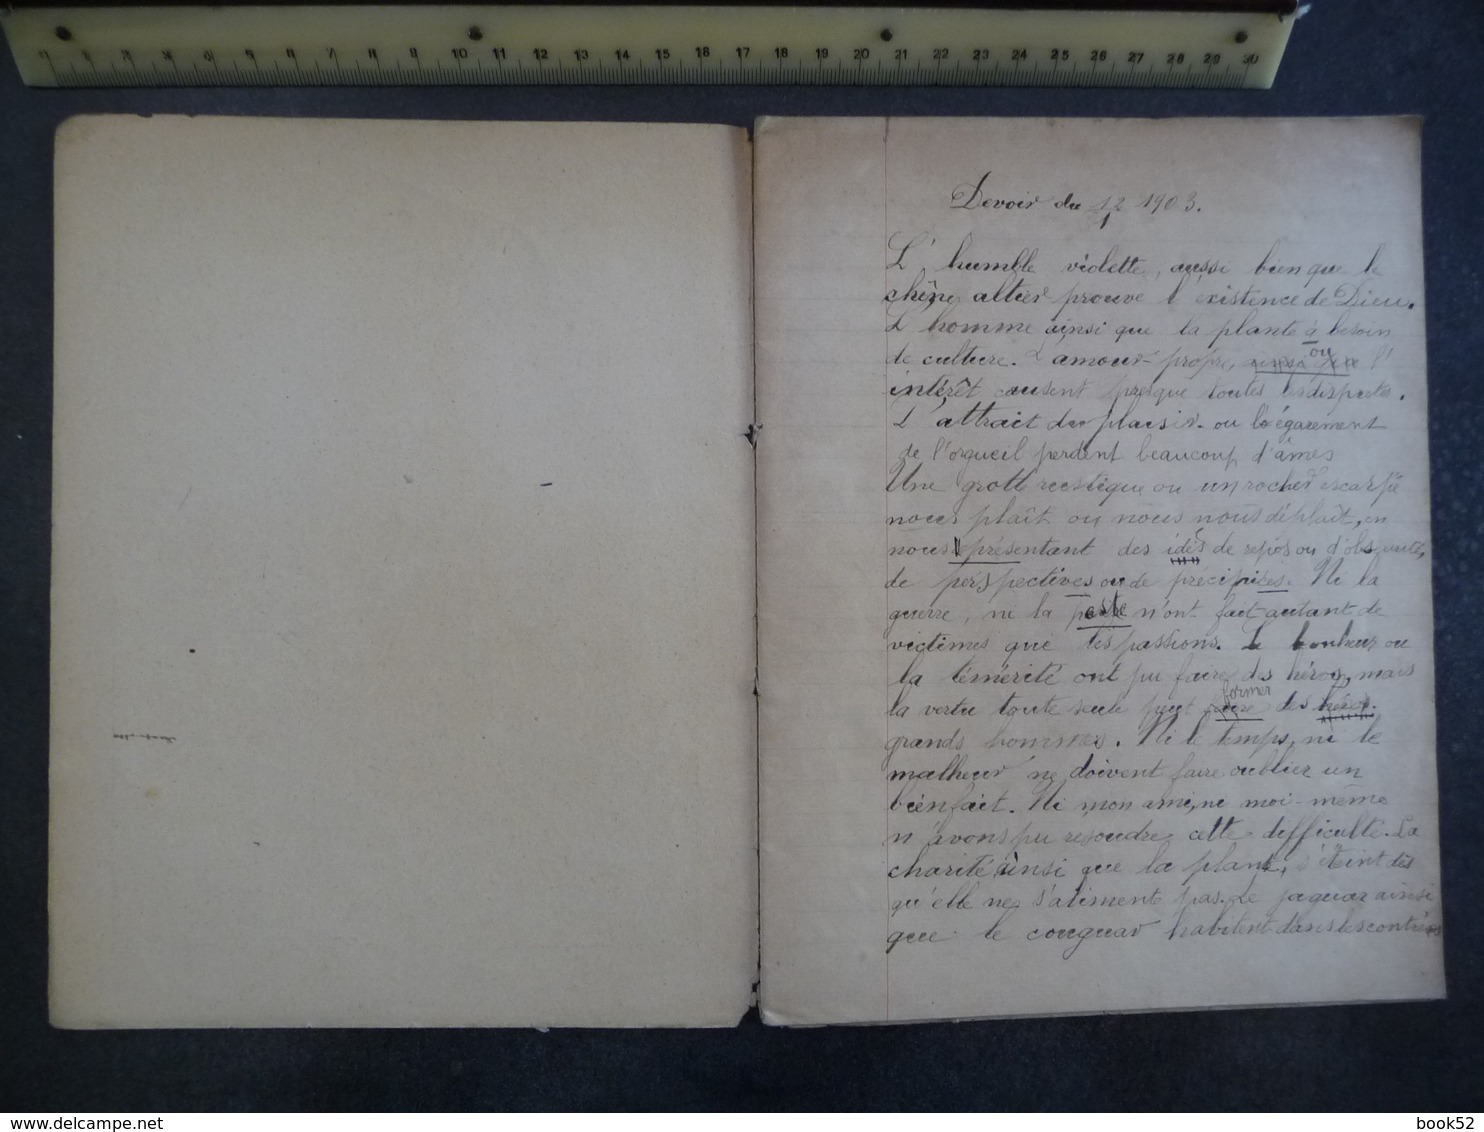 1 2 3 4 5 6 7 8 9 10 11 12 13 14 15 16 17 18 19 20 21 22 23 24 25 26 27 28 29 30
Devoir du 1903.
L'humble violette, aussi bien que le
chêne altier prouve l'existence de Dieu.
L'homme ainsi que la plante à besoin
de culture. L'amour-propre, ainsi que ou l'
intérêt causent presque toutes les disputes.
L'attrait du plaisir ou l'égarement
de l'orgueil perdent beaucoup d'âmes
Une grotte rustique ou un rocher escarpé
nous plaît ou nous nous déplaît, en
nous représentant des idés de repos ou d'obscurité,
de perspectives ou de précipices. Ni la
guerre, ni la peste n'ont fait autant de
victimes que les passions. Le bonheur ou
la témérité ont pu faire des héros, mais
la vertu toute seule peut faire former des héros.
grands hommes. Ni le temps, ni le
malheur ne doivent faire oublier un
bienfait. Ni mon ami, ni moi-même
n'avons pu resoudre cette difficulté. La
charité ainsi que la plant, s'éteint dès
qu'elle ne s'aliment pas. Le jaguar ainsi
que le couguar habitent dans les contrées
delcampe.net
book52